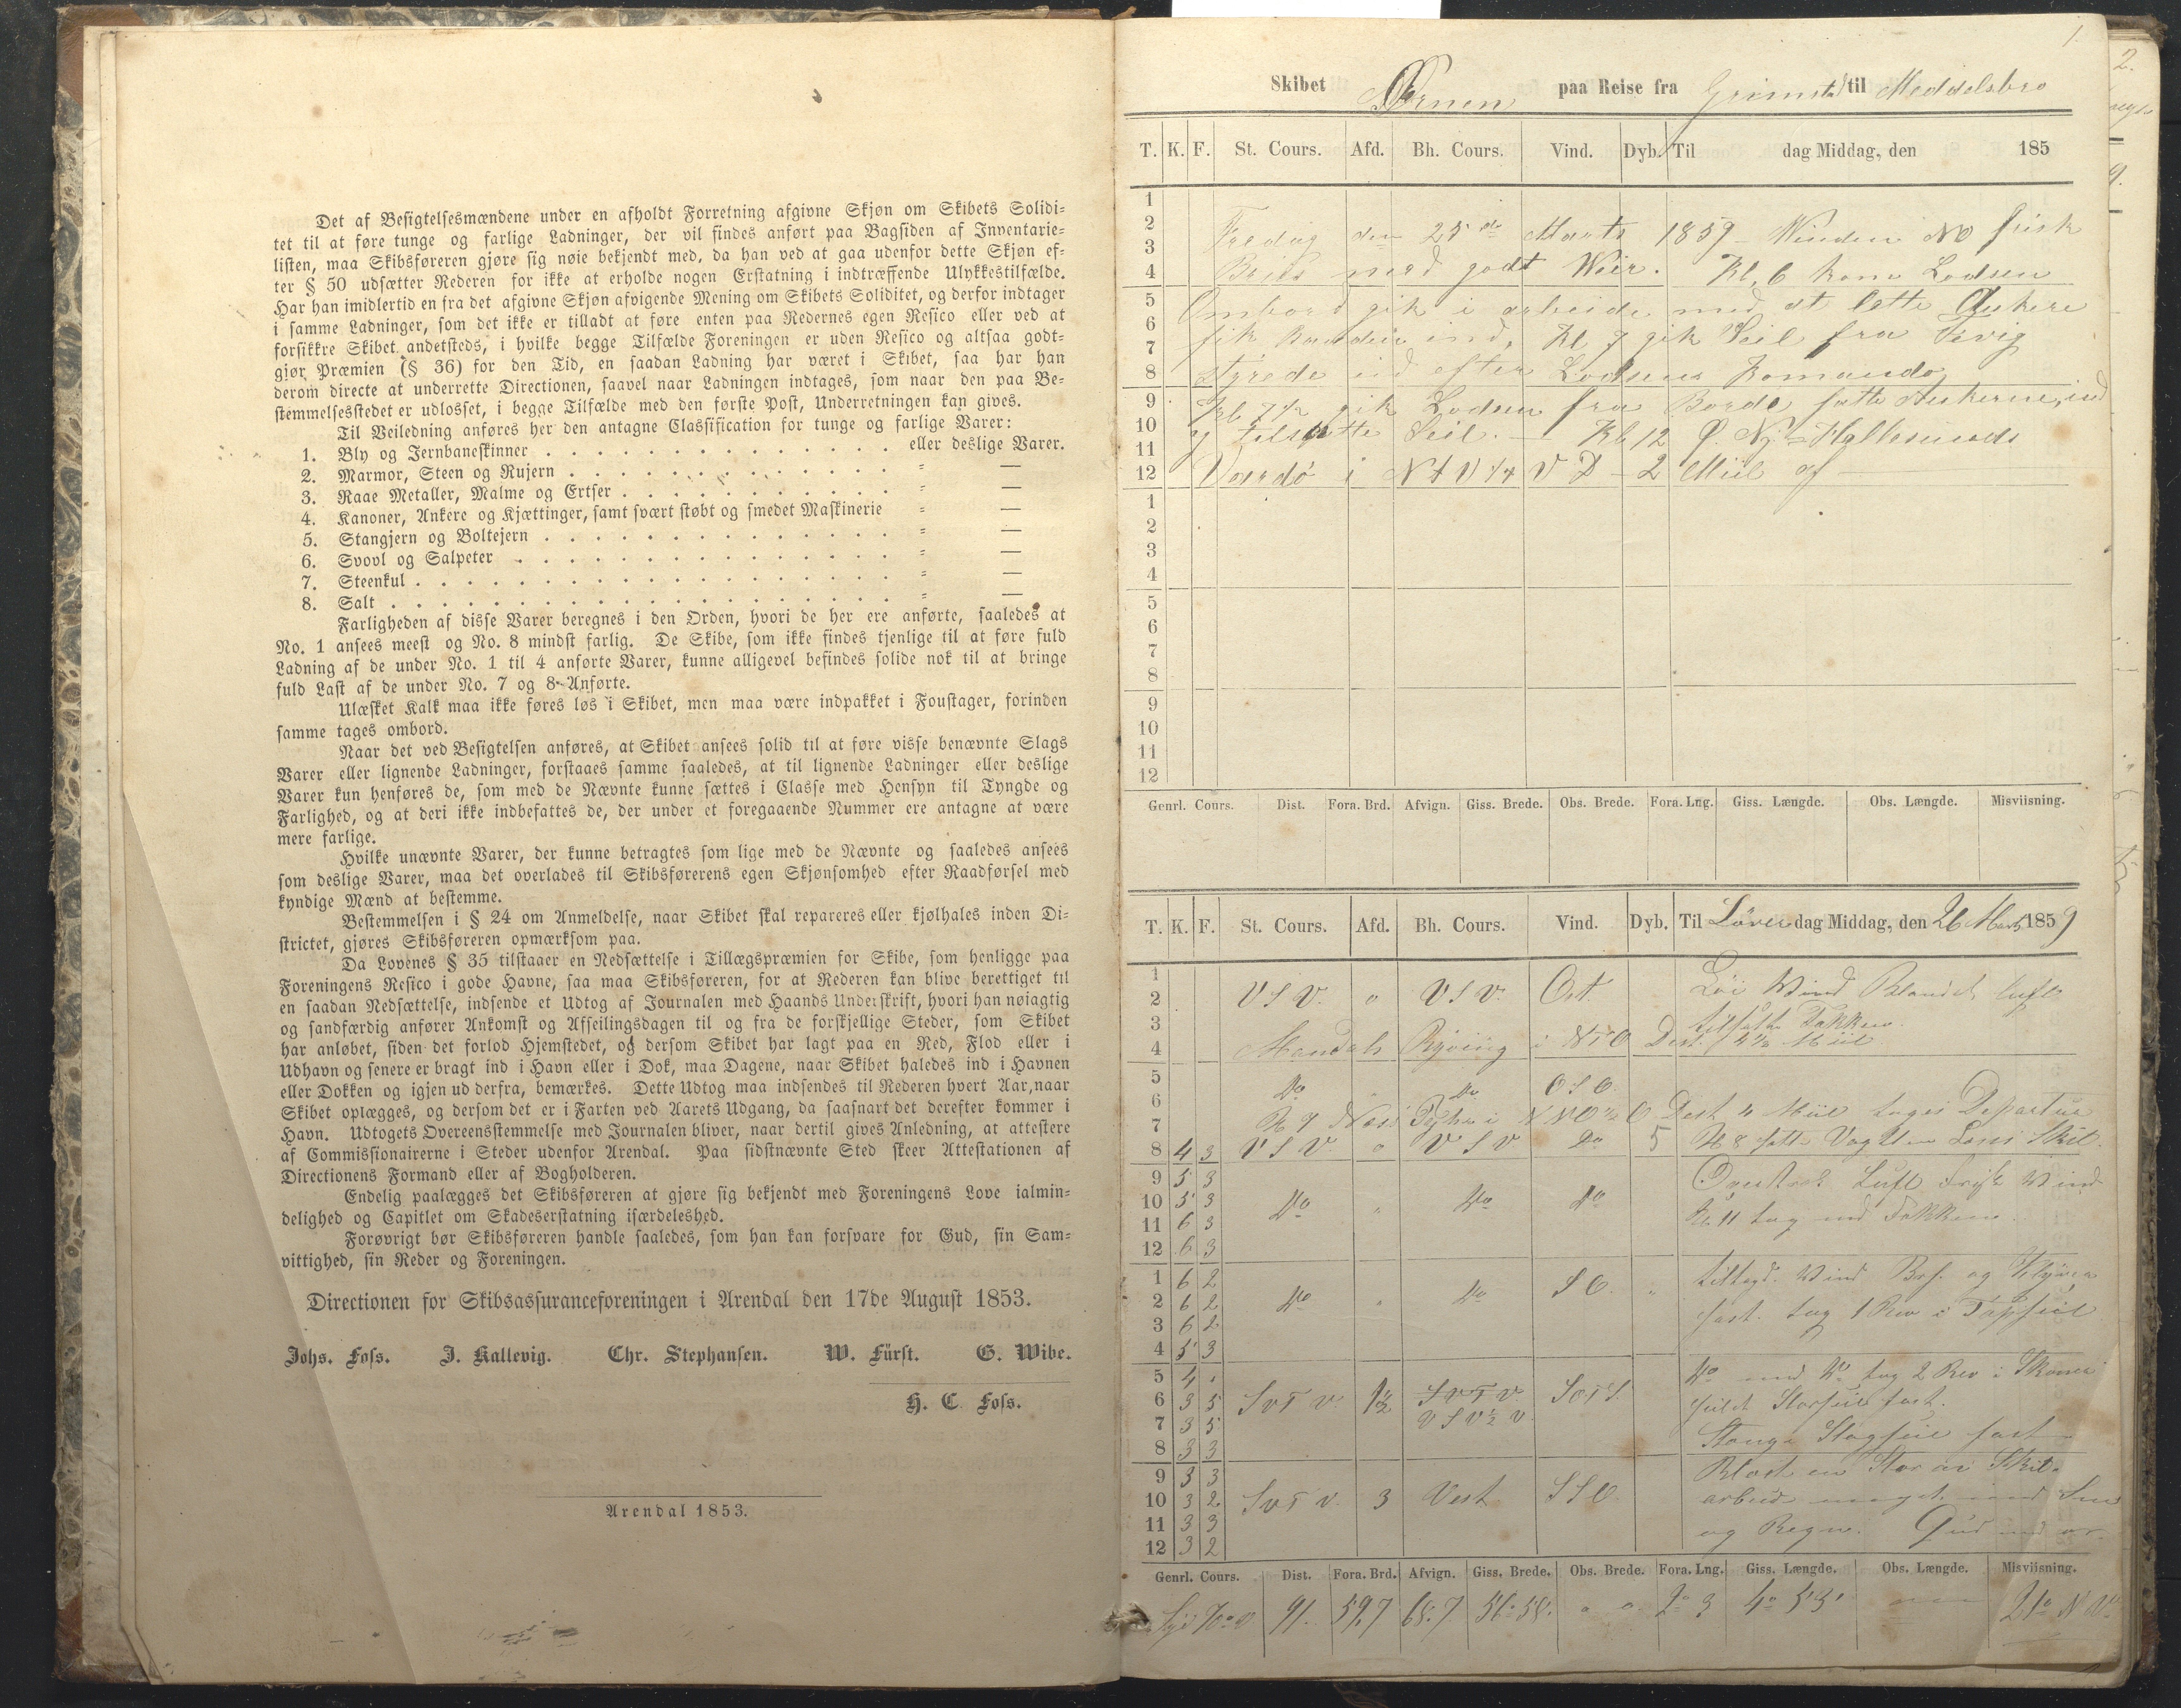 Det af Besigtelsesmændene under en afholdt Forretning afgivne Skjøn om Skibets Solidi-
tet til at føre tunge og farlige Ladninger, der vil findes anført paa Bagsiden af Inventarie-
listen, maa Skibsføreren gjøre sig nøie bekjendt med, da han ved at gaa udenfor dette Skjøn ef-
ter § 50 udsætter Rederen for ikke at erholde nogen Erstatning i indtræffende Ulykkestilfælde.
Har han imidlertid en fra det afgivne Skjøn afvigende Mening om Skibets Soliditet, og derfor indtager
i samme Ladninger, som det ikke er tilladt at føre enten paa Redernes egen Resico eller ved at
forsikkre Skibet andetsteds, i hvilke begge Tilfælde Foreningen er uden Resico og altsaa godt-
gjør Præmien (§ 36) for den Tid, en saadan Ladning har været i Skibet, saa har han
derom directe at underrette Directionen, saavel naar Ladningen indtages, som naar den paa Be-
stemmelsesstedet er udlosset, i begge Tilfælde med den første Post, Underretningen kan gives.
Til Veiledning anføres her den antagne Classification for tunge og farlige Varer:
1. Bly og Jernbaneskinner . . . . . . . . . . . . eller deslige Varer.
2. Marmor, Steen og Rujern . . . . . . . . . . . . = —
3. Raae Metaller, Malme og Ertser . . . . . . . . . . = —
4. Kanoner, Ankere og Kjættinger, samt svært støbt og smedet Maskinerie = —
5. Stangjern og Boltejern . . . . . . . . . . . . . = —
6. Svovl og Salpeter . . . . . . . . . . . . . . = —
7. Steenkul . . . . . . . . . . . . . . . . . . = —
8. Salt . . . . . . . . . . . . . . . . . . . = —
Farligheden af disse Varer beregnes i den Orden, hvori de her ere anførte, saaledes at
No. 1 ansees meest og No. 8 mindst farlig. De Skibe, som ikke findes tjenlige til at føre fuld
Ladning af de under No. 1 til 4 anførte Varer, kunne alligevel befindes solide nok til at bringe
fuld Last af de under No. 7 og 8 Anførte.
Ulæsket Kalk maa ikke føres løs i Skibet, men maa være indpakket i Foustager, forinden
samme tages ombord.
Naar det ved Besigtelsen anføres, at Skibet ansees solid til at føre visse benævnte Slags
Varer eller lignende Ladninger, forstaaes samme saaledes, at til lignende Ladninger eller deslige
Varer kun henføres de, som med de Nævnte kunne sættes i Classe med Hensyn til Tyngde og
Farlighed, og at deri ikke indbefattes de, der under et foregaaende Nummer ere antagne at være
mere farlige.
Hvilke unævnte Varer, der kunne betragtes som lige med de Nævnte og saaledes ansees
som deslige Varer, maa det overlades til Skibsførerens egen Skjønsomhed efter Raadførsel med
kyndige Mænd at bestemme.
Bestemmelsen i § 24 om Anmeldelse, naar Skibet skal repareres eller kjølhales inden Di-
strictet, gjøres Skibsføreren opmærksom paa.
Da Lovenes § 35 tilstaaer en Nedsættelse i Tillægspræmien for Skibe, som henligge paa
Foreningens Resico i gode Havne, saa maa Skibsføreren, for at Rederen kan blive berettiget til
en saadan Nedsættelse, indsende et Udtog af Journalen med Haands Underskrift, hvori han nøiagtig
og sandfærdig anfører Ankomst og Afseilingsdagen til og fra de forskjellige Steder, som Skibet
har anløbet, siden det forlod Hjemstedet, og dersom Skibet har lagt paa en Red, Flod eller i
Udhavn og senere er bragt ind i Havn eller i Dok, maa Dagene, naar Skibet haledes ind i Havnen
eller Dokken og igjen ud derfra, bemærkes. Dette Udtog maa indsendes til Rederen hvert Aar, naar
Skibet oplægges, og dersom det er i Farten ved Aarets Udgang, da saasnart det derefter kommer i
Havn. Udtogets Overeensstemmelse med Journalen bliver, naar dertil gives Anledning, at attestere
af Commissionairerne i Steder udenfor Arendal. Paa sidstnævnte Sted skeer Attestationen af
Directionens Formand eller af Bogholderen.
Endelig paalægges det Skibsføreren at gjøre sig bekjendt med Foreningens Love ialmin-
delighed og Capitlet om Skadeserstatning isærdeleshed.
Forøvrigt bør Skibsføreren handle saaledes, som han kan forsvare for Gud, sin Sam-
vittighed, sin Reder og Foreningen.
Directionen for Skibsassuranceforeningen i Arendal den 17de August 1853.
Johs. Foss. J. Kallevig. Chr. Stephansen. W. Fürst. G. Wibe.
H. C. Foss.
Arendal 1853.
1.
Skibet Ørnen paa Reise fra Grimstad til Meddelsbro
T. K. F. St. Cours. Afd. Bh. Cours. Vind. Dyb. Til dag Middag, den 185
1
2 Fredag den 25de Marts 1859 Winden NO frisk
3
4 Briis med godt Weir. Kl. 6 kom Lodsen
5 Ombord gik i arbeide med at lette Ankere
6
7 fik Baaden ind, Kl 7 gik Seil fra Fevig
8 styrede ud efter Lodsens Komando
9 Kl 7½ gik Lodsen fra Borde satte Ankerne ind
10 og tilsatte Seil. — Kl 12
11
12 i NtV¼V D 2 Miil af
1
2
3
4
5
6
7
8
9
10
11
12
Genrl. Cours. Dist. Fora. Brd. Afvign. Giss. Brede. Obs. Brede. Fora. Lng. Giss. Længde. Obs. Længde. Misviisning.
T. K. F. St. Cours. Afd. Bh. Cours. Vind. Dyb. Til Löver dag Middag, den 26 Marts 1859
1
2 VSV. o VSV. Ost. Löi Wind Blandet luft
3 tilsatte Takken
4 Mandals Ryving i NTO Dist. 1½ Miil
5
6 Do Do OSO.
7 Kl 7 i NNO½O Dest 4 Miil toges Departur
8 4 3 VSV. o VSV Do 5 Kl 8 satte Vagt
9 5 3 Overtrek Luft frisk Wind
10 5 3 Do " Do Do
11 6 3 Kl. 11 tog ind
12 6 3
1 6 2 tiltagd. Wind Brf. og Klyver
2 6 2 Do " Do SO. "
3 6 2 fast. tog 1 Rev i Topseil
4 5 3
5 4 1 Do med Do tog 2 Rev i Skonner
6 3 5 SvTv 1½ SvTv SOTS
7 3 5 VSV½V seilet Storseil fast.
8 3 3 Stange Stagseil fast
9 3 3 Blæst en Storm Skib
10 3 2 SvTv. 3 Vest SSO. arbeide meget med
11 3 3 og Regn. Gud med os.
12 3 2
Genrl. Cours. Dist. Fora. Brd. Afvign. Giss. Brede. Obs. Brede. Fora. Lng. Giss. Længde. Obs. Længde. Misviisning.
Syd 70° v 91. 59,7 68.7 56° 58. o o 2° 3 4° 53' 21° NV
2.